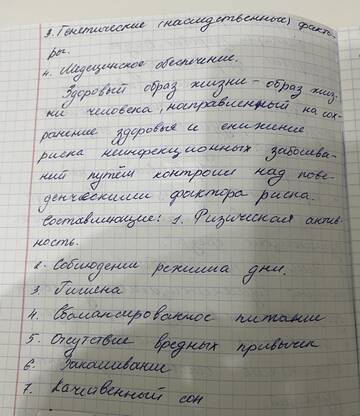 3. Генетические (наследственные) факто-
ры.
4. Медицинское обеспечение.
Здоровый образ жизни – образ жиз-
ни человека, направленный на сох-
ранение здоровья и снижение
риска неинфекционных заболева-
ний путём контроля над пове-
денческими фактора риска.
Составляющие: 1. Физическая актив-
ность.
2. Соблюдении режима дня.
3. Гигиена
4. Сбалансированное питание
5. Отсутствие вредных привычек
6. Закаливание
7. Качественный сон